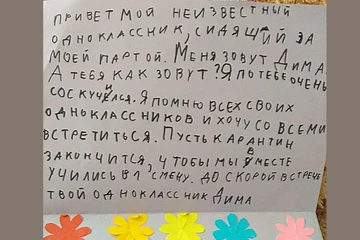 ПРИВЕТ МОЙ НЕИЗВЕСТНЫЙ
ОДНОКЛАССНИК, СИДЯЩИЙ ЗА
МОЕЙ ПАРТОЙ. МЕНЯ ЗОВУТ ДИМА.
А ТЕБЯ КАК ЗОВУТ? Я ПО ТЕБЕ ОЧЕНЬ
СОСКУЧИЛСЯ. Я ПОМНЮ ВСЕХ СВОИХ
ОДНОКЛАССНИКОВ И ХОЧУ СО ВСЕМИ
ВСТРЕТИТЬСЯ. ПУСТЬ КАРАНТИН
ЗАКОНЧИТСЯ, ЧТОБЫ МЫ ВМЕСТЕ
УЧИЛИСЬ В 1 СМЕНУ. ДО СКОРОЙ ВСТРЕЧИ
ТВОЙ ОДНОКЛАССНИК ДИМА